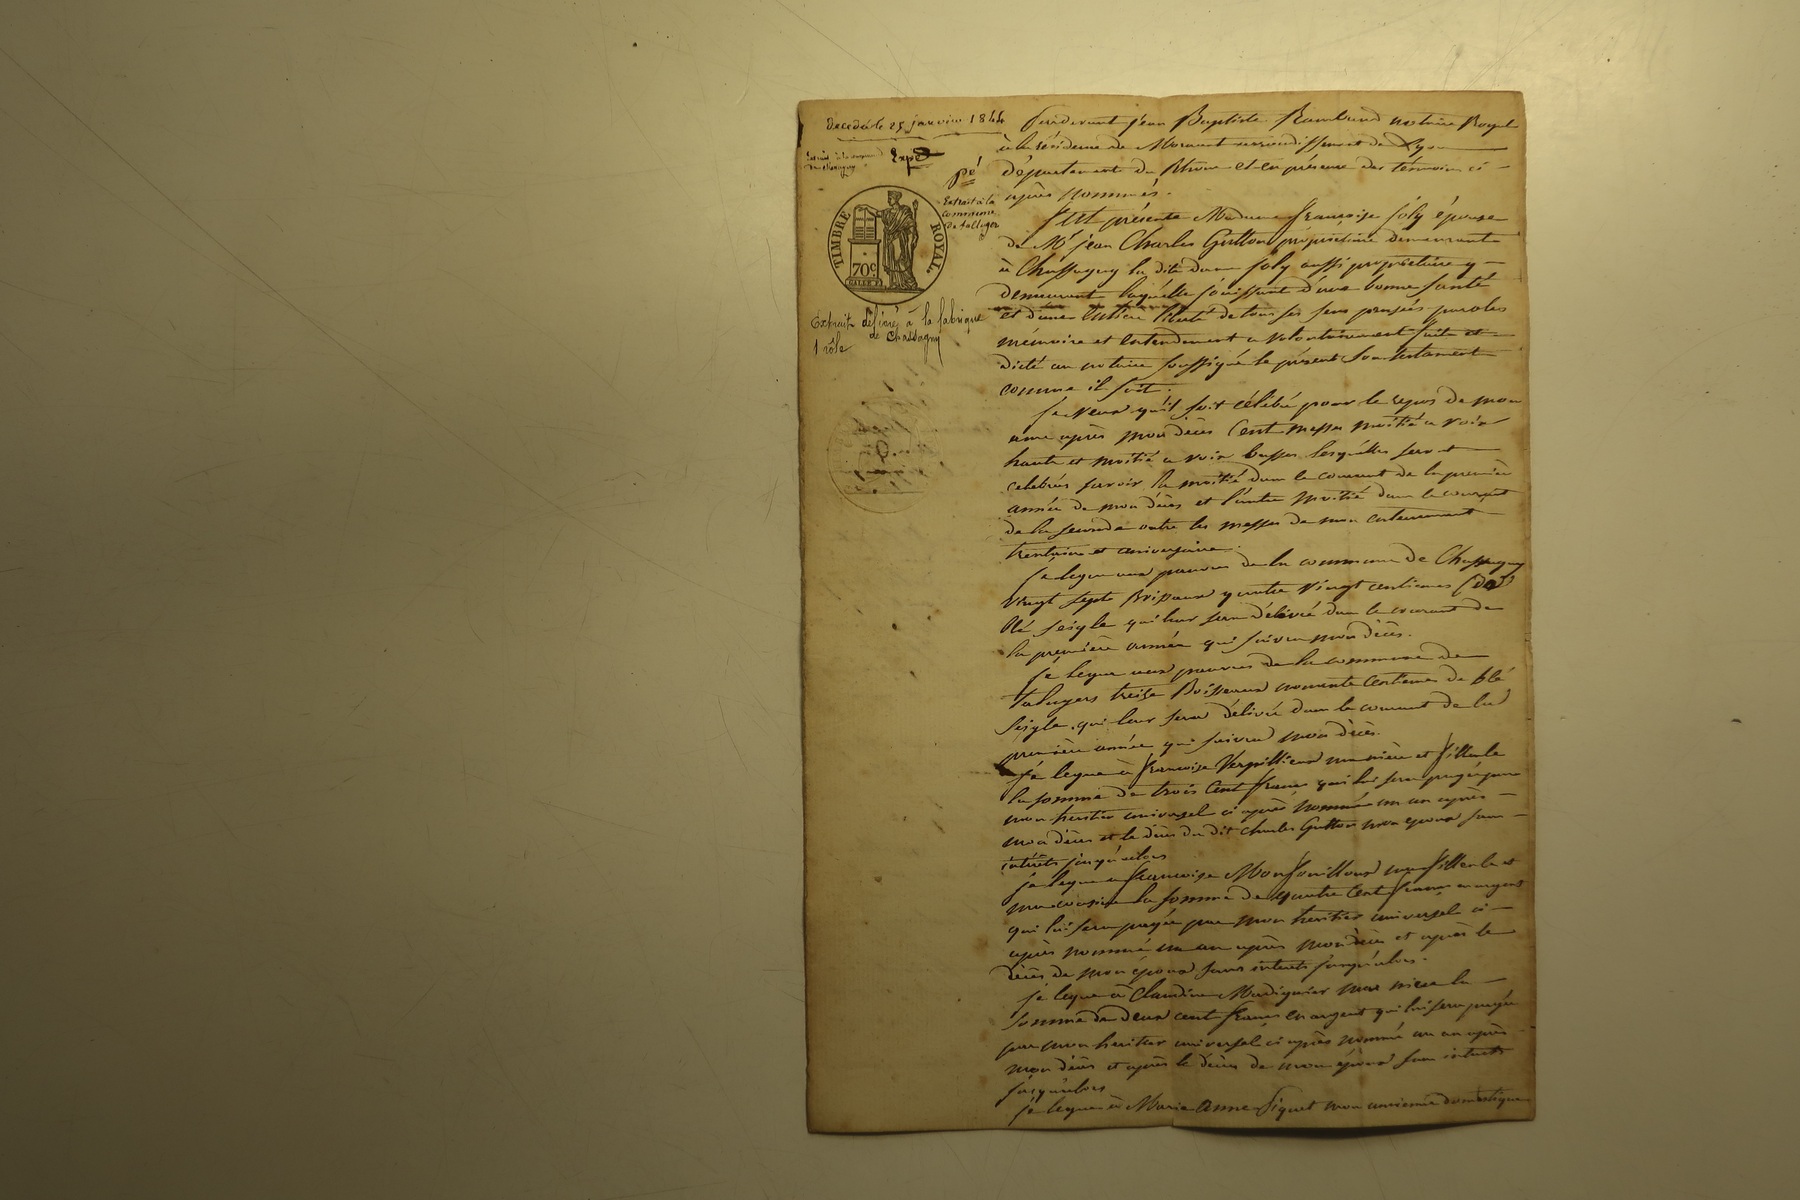 Décédée le 25 janvier 1844
Extrait à la
de Montagny
Expé
pé
Extrait à la
commune
de talluyer
TIMBRE ROYAL.
70c
Extrait délivré à la fabrique
de Chassagny
1 rôle
Pardevant Jean Baptiste Rambaud notaire Royal
à la résidence de Mornant arrondissement de Lyon
département du Rhône et en présence des témoins ci-
après nommés.
Fut présente Madame françoise Joly épouse
de Mr jean Charles Gutton propriétaire demeurants
à Chassagny la dite dame Joly aussi propriétaire y
demeurant laquelle jouissant d'une bonne santé
et d'une entière liberté de tous ses sens pensées paroles
mémoire et entendement a volontairement fait et
dicté au notaire soussigné le présent son testament
comme il suit.
Je veux qu'il soit célébré pour le repos de mon
ame après mon décès Cent messes moitié a voix
haute et moitié a voix basses lesquelles seront
celebrées savoir la moitié dans le courant de la première
année de mon décès et l'autre moitié dans le courant
de la seconde outre les messes de mon enterrement
trentaine et aniversaire.
Je legue aux pauvres de la commune de Chassagny
vingt sept Boisseaux quatre vingt centiemes (de)
blé seigle qui leur sera délivré dans le courant de
la première année qui suivra mon décès.
Je legue aux pauvres de la commune de
taluyers treize Boisseaux nonante centiemes de blé
Seigle qui leur sera délivré dans le courant de la
première année qui suivra mon décès.
Je legue à françoise Verpilleux ma nièce et filleule
la somme de trois Cent francs qui lui sera payée par
mon heritier universel ci après nommé un an après
mon décès et le décès du dit Charles Gutton mon epoux sans
intérêts jusqu'alors
je legue a françoise Monfouilloux ma filleule et
ma cousine la somme de quatre Cent francs en argent
qui lui sera payée par mon heritier universel ci-
après nommé un an après mon décès et après le
décès de mon époux sans intérets jusqu'alors.
je legue à Claudine Madignier ma niece la
somme de deux cent francs en argent qui lui sera payée
par mon heritier universel ci après nommé un an après
mon décès et après le décès de mon époux sans intérets
jusqu'alors
je legue à Marie Anne Siquet mon ancienne domestique